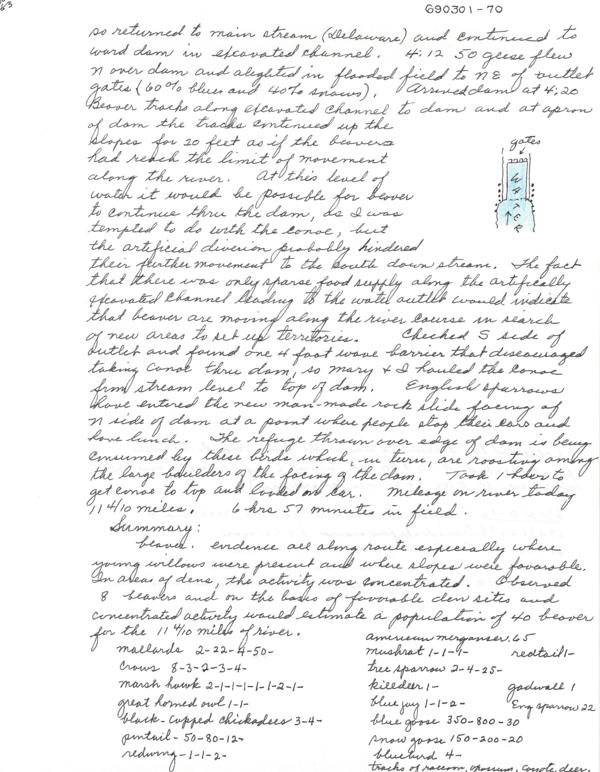 690301-70
so returned to main stream (Delaware) and continued to
ward dam in excavated channel. 4:12 50 geese flew
N over dam and alighted in flooded field to NE of outlet
gates (60% blues and 40% snows). Arrived dam at 4:20
Beaver tracks along excavated channel to dam and at apron
of dam the tracks continued up the
slopes for 20 feet as if the beavers
had reach the limit of movement
along the river. At this level of
water it would be possible for beaver
to continue thru the dam, as I was
tempted to do with the canoe, but
the artificial diversion probably hindered
gates
WATER
their further movement to the south down stream. The fact
that there was only sparse food supply along the artifically
excavated channel leading to the water outlet would indicate
that beaver are moving along the river course in search
of new areas to set up territories. Checked S side of
outlet and found one 4 foot wave barrier that discouraged
taking canoe thru dam, so Mary & I hauled the canoe
frm stream level to top of dam. English sparrows
have entered the new man-made rock slide facing of
N side of dam at a point where people stop their cars and
have lunch. The refuge thrown over edge of dam is being
consumed by these birds which, in turn, are roosting among
the large boulders of the facing of the dam. Took 1 hour to
get canoe to top and loaded on car. Mileage on river today
11 4/10 miles. 6 hrs 57 minutes in field.
Summary:
beaver. evidence all along route especially where
young willows were present and where slopes were favorable.
In areas of dens, the activity was concentrated. Observed
8 beavers and on the basis of favorable den sites and
concentrated activity would estimate a population of 40 beaver
for the 11 4/10 miles of river.
mallards 2-22-4-50-
crows 8-3-2-3-4-
marsh hawk 2-1-1-1-1-1-2-1-
great horned owl 1-1-
black-capped chickadees 3-4-
pintail-50-80-12-
redwing-1-1-2-
american merganser. 65
muskrat 1-1-1- redtail 1-
tree sparrow 2-4-25-
killdeer 1- gadwall 1
blue jay 1-1-2- Eng sparrow 22
blue goose 350-800-30
snow goose 150-200-20
bluebird 4-
tracks of raccoon, opossum, coyote, deer.